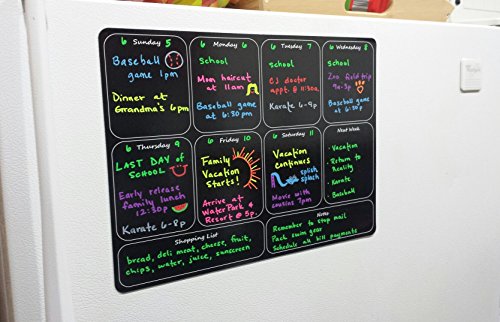 6 Sunday 5
Baseball
game 1pm
Dinner at
Grandma's 6pm
6 Monday 6
School
Mom haircut
at 11am
Baseball game
at 6:30 pm
6 Tuesday 7
School
CJ doctor
appt. @ 11:30a.
Karate 6-8p
6 Wednesday 8
School
Zoo field trip
9a-3p
Baseball game
at 6:30pm
6 Thursday 9
LAST DAY OF
SCHOOL
Early release
family lunch
12:30p
Karate 6-8p
6 Friday 10
Family
Vacation
Starts!
Arrive at
Water Park &
Resort @ 5p.
6 Saturday 11
Vacation
continues
splish
splash
Movie with
cousins 7pm
Next Week
• Vacation
• Return to
Reality
• Karate
• Baseball
Shopping List
bread, deli meat, cheese, fruit,
chips, water, juice, sunscreen
Notes
Remember to stop mail
Pack swim gear
Schedule all bill payments